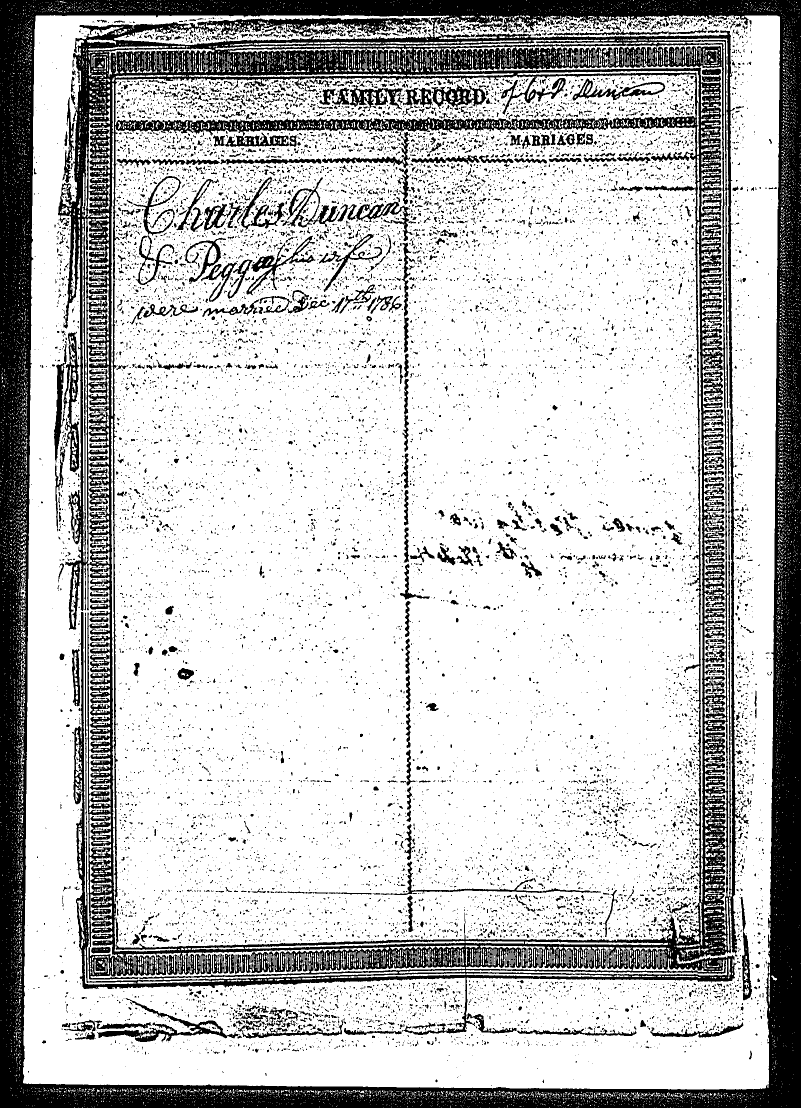 FAMILY RECORD. of C & P. Duncan
MARRIAGES. MARRIAGES.
Charles Duncan
& Peggy (his wife)
were married Dec 17th 1786